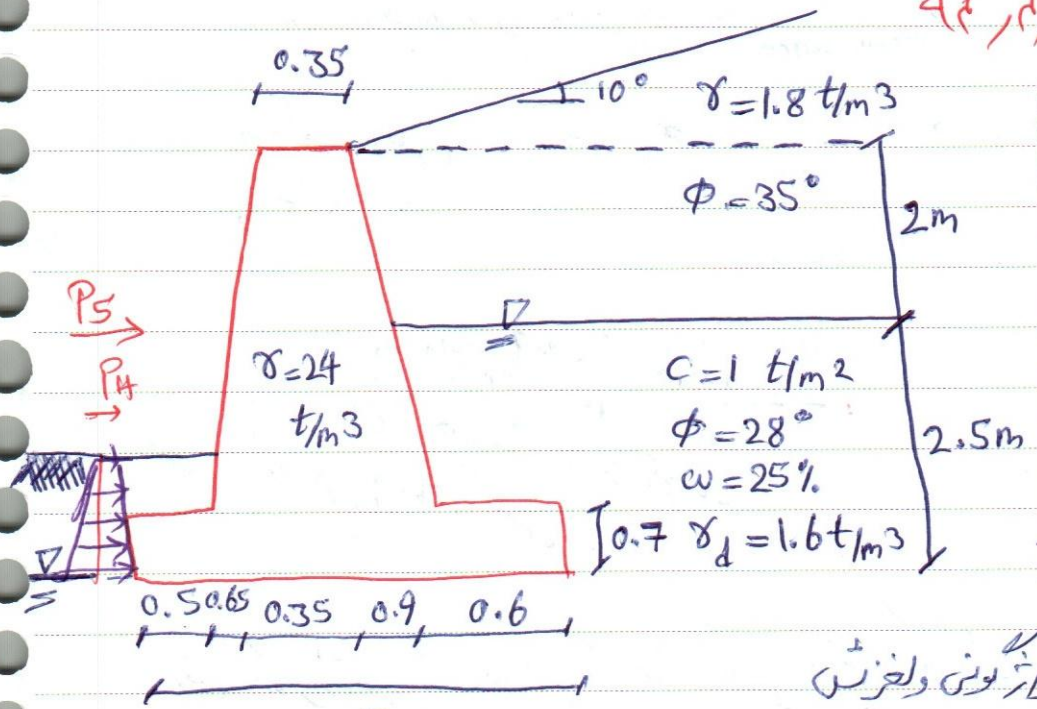 0.35
10°
γ=1.8 t/m3
φ=35°
2m
P5
P4
γ=24
t/m3
C=1 t/m2
φ=28°
ω=25%
2.5m
0.7
γd=1.6 t/m3
0.5
0.65
0.35
0.9
0.6
ولغزش